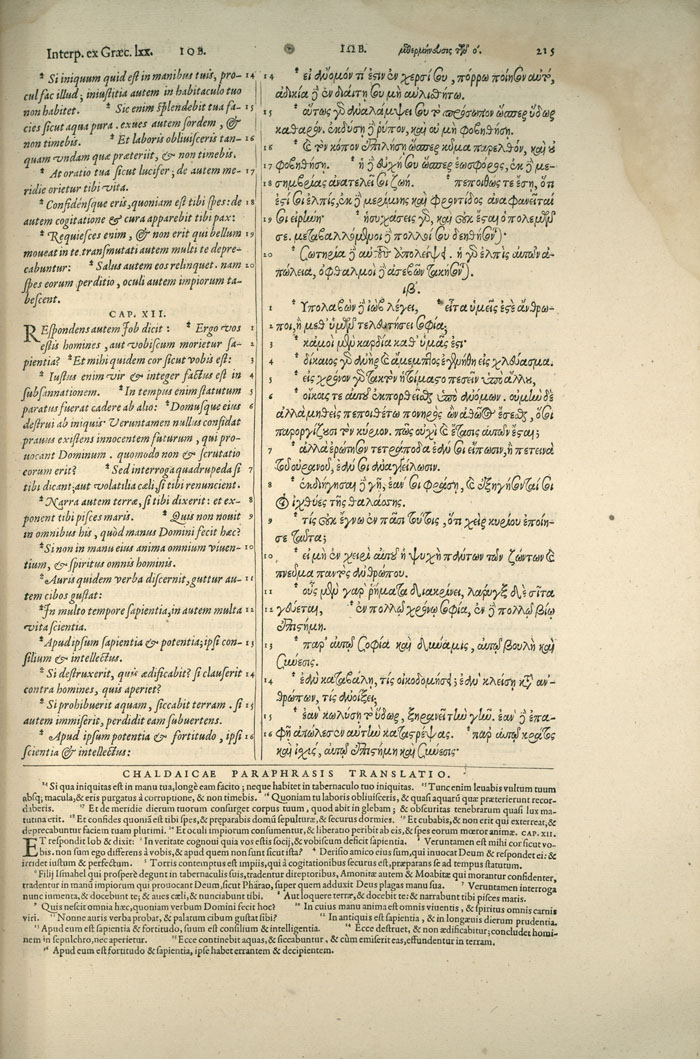 Interp. ex Græc. lxx. IOB.
* Si iniquum quid est in manibus tuis, pro- 14
cul fac illud; iniustitia autem in habitaculo tuo
non habitet. * Sic enim splendebit tua fa- 15
cies sicut aqua pura. exues autem sordem, &
non timebis. * Et laboris obliuisceris tan- 16
quam vndam quæ præteriit, & non timebis.
* At oratio tua sicut lucifer; de autem me- 17
ridie orietur tibi vita.
* Confidensque eris, quoniam est tibi spes: de 18
autem cogitatione & cura apparebit tibi pax:
* Requiesces enim, & non erit qui bellum 19
moueat in te. transmutati autem multi te depre-
cabuntur: * Salus autem eos relinquet. nam 20
spes eorum perditio, oculi autem impiorum ta-
bescent.
CAP. XII.
REspondens autem Iob dicit: * Ergo vos 1
estis homines, aut vobiscum morietur sa- 2
pientia? * Et mihi quidem cor sicut vobis est: 3
* Iustus enim vir & integer factus est in 4
subsannationem. * In tempus enim statutum 5
paratus fuerat cadere ab alio: * Domusque eius 6
destrui ab iniquis. Veruntamen nullus confidat
prauus existens innocentem futurum, qui pro-
uocant Dominum. quomodo non & scrutatio
eorum erit? * Sed interroga quadrupeda si 7
tibi dicant; aut volatilia cæli, si tibi renuncient.
* Narra autem terræ, si tibi dixerit: et ex- 8
ponent tibi pisces maris. * Quis non nouit 9
in omnibus his, quòd manus Domini fecit hæc?
* Si non in manu eius anima omnium viuen- 10
tium, & spiritus omnis hominis.
* Auris quidem verba discernit, guttur au- 11
tem cibos gustat:
* In multo tempore sapientia, in autem multa 12
vita scientia.
* Apud ipsum sapientia & potentia; ipsi con- 13
silium & intellectus.
* Si destruxerit, quis ædificabit? si clauserit 14
contra homines, quis aperiet?
* Si prohibuerit aquam, siccabit terram. si 15
autem immiserit, perdidit eam subuertens.
* Apud ipsum potentia & fortitudo, ipsi 16
scientia & intellectus:
ΙΩΒ. μεθερμήνευσις τῶν ό. 215
14 * εἰ ἄνομόν τί ἐστιν ἐν χερσί σου, πόῤῥω ποίησον αὐτό,
ἀδικία δὲ ἐν διαίτῃ σου μὴ αὐλισθήτω.
15 * οὕτως γὸ ἀναλάμψει σου τὸ πρόσωπον ὥσπερ ὕδωρ
καθαρόν. ἐκδύσῃ δὲ ῥύπον, καὶ οὐ μὴ φοβηθήσῃ.
16 * καὶ τὸν κόπον ἐπιλήσῃ ὥσπερ κῦμα παρελθὸν, καὶ οὐ
17 φοβηθήσῃ. * ἡ δὲ εὐχή σου ὥσπερ ἑωσφόρος, ἐκ δὲ με-
18 σημβρίας ἀνατελεῖ σοι ζωή. * πεποιθώς τε ἔσῃ, ὅτι
ἐστί σοι ἐλπίς, ἐκ δὲ μερίμνης καὶ φροντίδος ἀναφανεῖταί
19 σοι εἰρήνη· * ἡσυχάσεις γὸ, καὶ οὐκ ἔσται ὁ πολεμῶν
σε. μεταβαλλόμενοι δὲ πολλοί σου δεηθήσονται·
20 * Σωτηρία δὲ αὐτοὺς ἀπολείψει. ἡ γὸ ἐλπὶς αὐτῶν ἀ-
πώλεια, ὀφθαλμοὶ δὲ ἀσεβῶν τακήσονται.
ιβ.
1 Ὑπολαβὼν δὲ ἰὼβ λέγει, * εἶτα ὑμεῖς ἐστὲ ἄνθρω-
2 ποι, ἢ μεθ' ὑμῶν τελευτήσει σοφία;
3 * κἀμοὶ μὲν καρδία καθ' ὑμᾶς ἐστι·
4 * δίκαιος γὸ ἀνὴρ καὶ ἄμεμπτος ἐγενήθη εἰς χλεύασμα.
5 * εἰς χρόνον γὸ τακτὸν ἡτοίμαστο πεσεῖν ὑπὸ ἄλλου,
6 * οἴκους τε αὐτοῦ ἐκπορθεῖσθαι ὑπὸ ἀνόμων. οὐ μὴν δὲ
ἀλλὰ μηθεὶς πεποιθέτω πονηρὸς ὢν ἀθῷος ἔσεσθαι, ὅσοι
παροργίζουσι τὸν κύριον. πῶς οὐχὶ καὶ ἔτασις αὐτῶν ἔσται;
7 * ἀλλὰ ἐρώτησον τετράποδα ἐάν σοι εἴπωσιν, ἢ πετεινὰ
τοῦ οὐρανοῦ, ἐάν σοι ἀναγγείλωσιν.
8 * ἐκδιήγησαι δὲ γῇ, ἐάν σοι φράσῃ, καὶ ἐξηγήσονταί σοι
οἱ ἰχθύες τῆς θαλάσσης.
9 * τίς οὐκ ἔγνω ἐν πᾶσι τούτοις, ὅτι χεὶρ κυρίου ἐποίη-
σε ταῦτα;
10 * εἰ μὴ ἐν χειρὶ αὐτοῦ ἡ ψυχὴ πάντων τῶν ζώντων καὶ
πνεῦμα παντὸς ἀνθρώπου.
11 * οὖς μὲν γὰρ ῥήματα διακρίνει, λάρυγξ δὲ σῖτα
12 γεύεται, * ἐν πολλῷ χρόνῳ σοφία, ἐν δὲ πολλῷ βίῳ
ἐπιστήμη.
13 * παρ' αὐτῷ σοφία καὶ δύναμις, αὐτῷ βουλὴ καὶ
σύνεσις.
14 * ἐὰν καταβάλῃ, τίς οἰκοδομήσει; ἐὰν κλείσῃ κατ' ἀν-
θρώπων, τίς ἀνοίξει;
15 * ἐὰν κωλύσῃ τὸ ὕδωρ, ξηρανεῖ τὴν γῆν. ἐὰν δὲ ἐπα-
16 φῇ ἀπώλεσεν αὐτὴν καταστρέψας. * παρ' αὐτῷ κράτος
καὶ ἰσχὺς, αὐτῷ ἐπιστήμη καὶ σύνεσις·
CHALDAICAE PARAPHRASIS TRANSLATIO.
14 Si qua iniquitas est in manu tua, longè eam facito; neque habitet in tabernaculo tuo iniquitas. 15 Tunc enim leuabis vultum tuum
absq; macula, & eris purgatus à corruptione, & non timebis. 16 Quoniam tu laboris obliuisceris, & quasi aquarū quæ præterierunt recor-
daberis. 17 Et de meridie dierum tuorum consurget corpus tuum, quod abit in glebam; & obscuritas tenebrarum quasi lux ma-
tutina erit. 18 Et confides quoniā est tibi spes, & præparabis domū sepulturæ, & securus dormies. 19 Et cubabis, & non erit qui exterreat, &
deprecabuntur faciem tuam plurimi. 20 Et oculi impiorum consumentur, & liberatio peribit ab eis, & spes eorum mœror animæ. CAP. XII.
ET respondit Iob & dixit: 2 In veritate cognoui quia vos estis socij, & vobiscum deficit sapientia. 3 Veruntamen est mihi cor sicut vo-
bis. non sum ego differens à vobis, & apud quem non sunt sicut ista? 4 Derisio amico eius sum, qui inuocat Deum & respondet ei: &
irridet iustum & perfectum. 5 Torris contemptus est impiis, qui à cogitationibus securus est, præparans se ad tempus statutum.
6 Filij Ismahel qui prosperè degunt in tabernaculis suis, tradentur direptoribus, Amonitæ autem & Moabitæ qui morantur confidenter,
tradentur in manū impiorum qui prouocant Deum, sicut Phárao, super quem adduxit Deus plagas manu sua. 7 Veruntamen interroga
nunc iumenta, & docebunt te; & aues cæli, & nunciabunt tibi. 8 Aut loquere terræ, & docebit te: & narrabunt tibi pisces maris.
9 Quis nescit omnia hæc, quoniam verbum Domini fecit hoc? 10 In cuius manu anima est omnis viuentis, & spiritus omnis carnis
viri. 11 Nonne auris verba probat, & palatum cibum gustat sibi? 12 In antiquis est sapientia, & in longæuis dierum prudentia.
13 Apud eum est sapientia & fortitudo, suum est consilium & intelligentia. 14 Ecce destruet, & non ædificabitur; concludet homi-
nem in sepulchro, nec aperietur. 15 Ecce continebit aquas, & siccabuntur, & cùm emiserit eas, effundentur in terram.
16 Apud eum est fortitudo & sapientia, ipse habet errantem & decipientem.